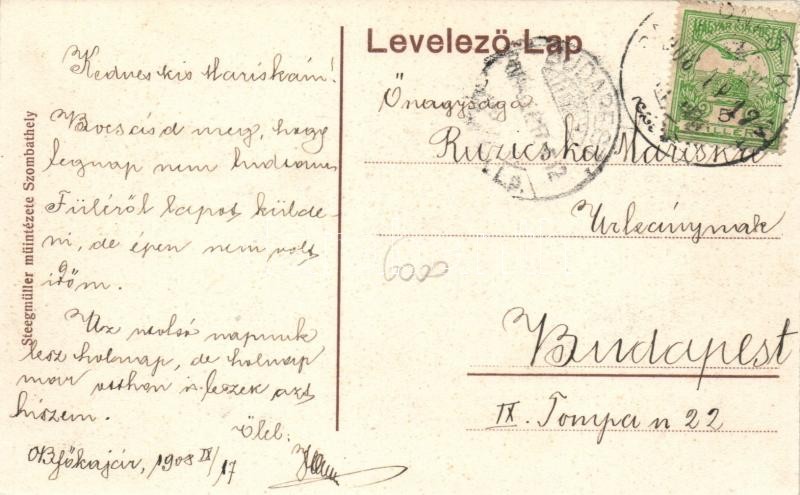 Kedves kis Mariskám!
Bocsásd meg, hogy
tegnap nem tudtam
Füléről lapot külde-
ni, de épen nem volt
időm.
Az utolsó napunk
lesz holnap, de holnap
már otthon is leszek azt
hiszem.
Ölel:
Bfőkajár, 1908 IX/17
Steegmüller műintézete Szombathely
Levelező-Lap
Őnagysága
Ruzicska Mariska
Urleánynak
Budapest
IX. Tompa u 22
6000
MAGYAR KIR. POSTA
5
FILLÉR
BUDAPEST